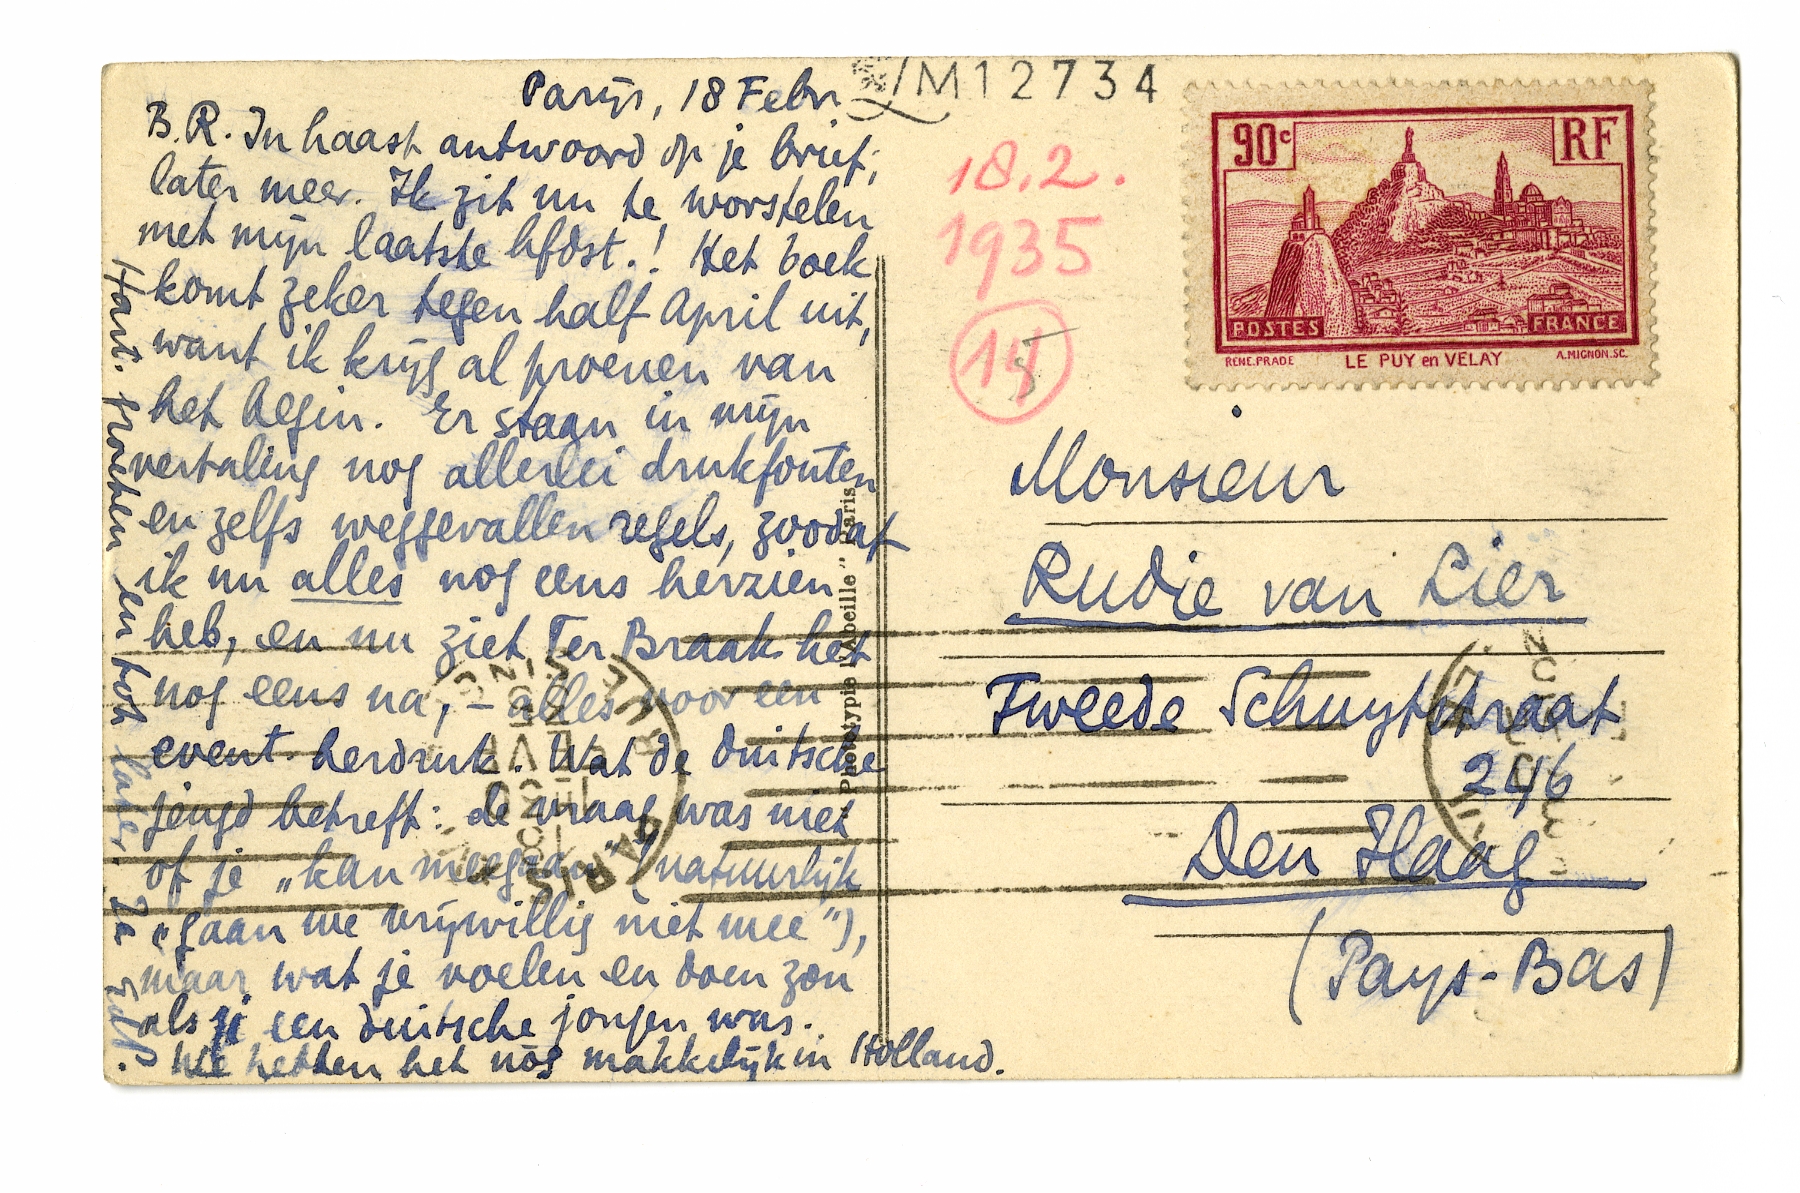 Parijs, 18 Febr.
B.R. In haast antwoord op je brief;
later meer. Ik zit nu te worstelen
met mijn laatste hfdst.! Het boek
komt zeker tegen half April uit,
want ik krijg al proeven van
het begin. Er staan in mijn
vertaling nog allerlei drukfouten
en zelfs weggevallen regels, zoodat
ik nu alles nog eens herzien
heb, en nu ziet Ter Braak het
nog eens na, - alles voor een
event. herdruk. Wat de duitsche
jeugd betreft: de vraag was niet
of je „kan meegaan" (natuurlijk
„gaan we vrijwillig niet mee"),
maar wat je voelen en doen zou
als je een duitsche jongen was.
We hebben het nòg makkelijk in Holland.
Hart. groeten en tot later. Je EdP.
M12734
18.2.
1935
14
5
90c
RF
POSTES
FRANCE
RENE.PRADE
LE PUY en VELAY
A.MIGNON.SC.
Phototypie l'Abeille" Paris
PARIS
Monsieur
Rudie van Lier
Tweede Schuytstraat
246
Den Haag
(Pays-Bas)